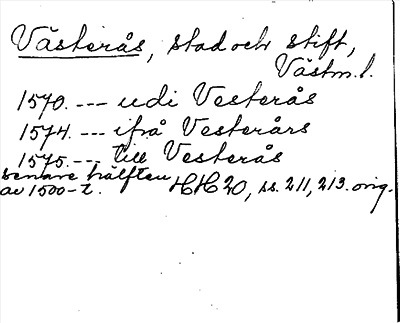 Västerås, stad och stift,
Västm. l.
1570. --- udi Vesterås
1574. --- ifrå Vesterårs
1575. --- till Vesterås
senare hälften
av 1500-t. HH 20, ss. 211, 213. orig.